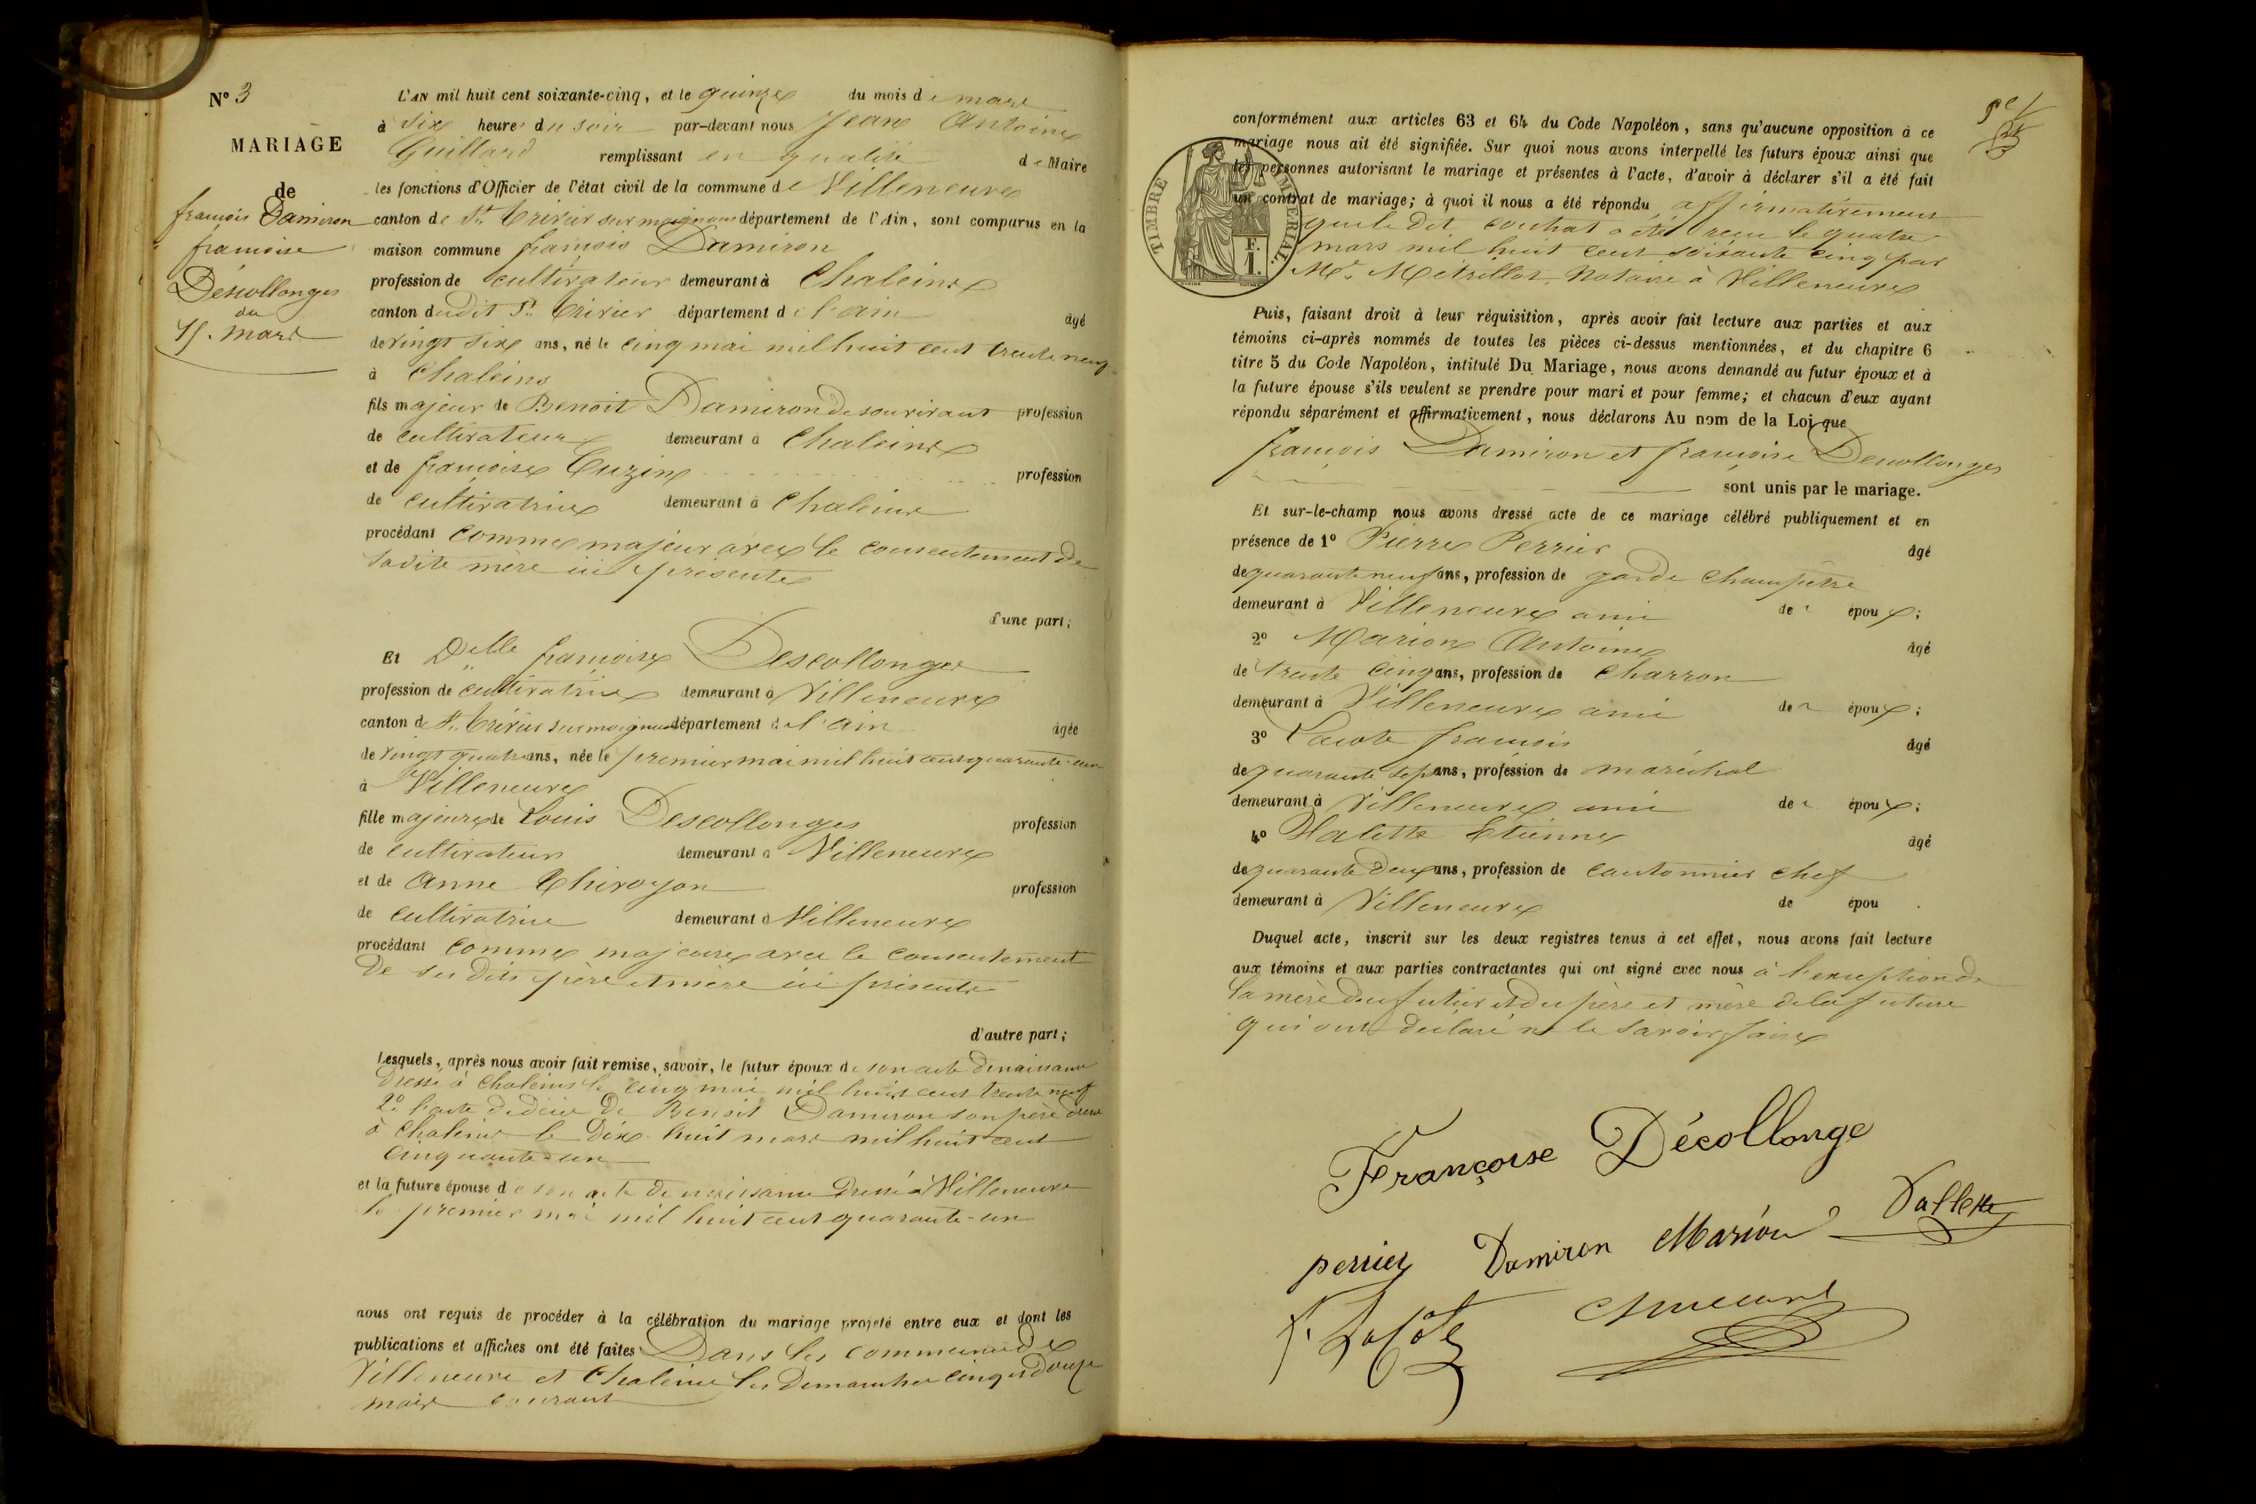 N° 3
MARIAGE
de
françois Damiron
françoise
Descollonges
du
15. mars
L'AN mil huit cent soixante-cinq, et le quinze du mois de mars
à six heures du soir par-devant nous Jean Antoine
Guillard remplissant en qualité de Maire
les fonctions d'Officier de l'état civil de la commune de Villeneuve
canton de St. Trivier sur moignans département de l'Ain, sont comparus en la
maison commune françois Damiron
profession de cultivateur demeurant à Chaleins
canton dudit St. Trivier département de l'ain âgé
de vingt six ans, né le cinq mai mil huit cent trente neuf
à Chaleins
fils majeur de Benoit Damiron de son vivant profession
de cultivateur demeurant à Chaleins
et de françoise Cuzin profession
de cultivatrice demeurant à Chaleins
procédant comme majeur avec le consentement de
sadite mère ici présente
d'une part;
Et Delle françoise Descollonges
profession de cultivatrice demeurant à Villeneuve
canton de St. Trivier sur moignans département de l'ain âgée
de vingt quatre ans, née le premier mai mil huit cent quarante-un
à Villeneuve
fille majeure de Louis Descollonges profession
de cultivateur demeurant à Villeneuve
et de Anne Thivoyon profession
de cultivatrice demeurant à Villeneuve
procédant comme majeure avec le consentement
de ses dits père et mère ici présents
d'autre part;
Lesquels, après nous avoir fait remise, savoir, le futur époux de son acte de naissance
dressé à Chaleins le cinq mai mil huit cent trente neuf
2° l'acte de décès de Benoit Damiron son père dressé
à Chaleins le dix huit mars mil huit cent
cinquante-un
et la future épouse de son acte de naissance dressé à Villeneuve
le premier mai mil huit cent quarante-un
nous ont requis de procéder à la célébration du mariage projeté entre eux et dont les
publications et affiches ont été faites Dans les communes de
Villeneuve et Chaleins les Dimanches cinq et douze
mars courant
conformément aux articles 63 et 64 du Code Napoléon, sans qu'aucune opposition à ce
mariage nous ait été signifiée. Sur quoi nous avons interpellé les futurs époux ainsi que
les personnes autorisant le mariage et présentes à l'acte, d'avoir à déclarer s'il a été fait
un contrat de mariage; à quoi il nous a été répondu affirmativement
que le dit contrat a été reçu le quatre
mars mil huit cent soixante cinq par
Me. Métrillot Notaire à Villeneuve
TIMBRE IMPERIAL
F.
1.
Puis, faisant droit à leur réquisition, après avoir fait lecture aux parties et aux
témoins ci-après nommés de toutes les pièces ci-dessus mentionnées, et du chapitre 6
titre 5 du Code Napoléon, intitulé Du Mariage, nous avons demandé au futur époux et à
la future épouse s'ils veulent se prendre pour mari et pour femme; et chacun d'eux ayant
répondu séparément et affirmativement, nous déclarons Au nom de la Loi que
françois Damiron et françoise Descollonges
sont unis par le mariage.
Et sur-le-champ nous avons dressé acte de ce mariage célébré publiquement et en
présence de 1° Pierre Perrier âgé
de quarante neuf ans, profession de garde champêtre
demeurant à Villeneuve ami des époux;
2° Marion Antoine âgé
de trente cinq ans, profession de charron
demeurant à Villeneuve ami des époux;
3° Lacote françois âgé
de quarante sept ans, profession de maréchal
demeurant à Villeneuve ami des époux;
4° Valette Etienne âgé
de quarante deux ans, profession de cantonnier chef
demeurant à Villeneuve de épou .
Duquel acte, inscrit sur les deux registres tenus à cet effet, nous avons fait lecture
aux témoins et aux parties contractantes qui ont signé avec nous à l'exception de
la mère du futur et du père et mère de la future
qui ont déclaré ne le savoir faire
Françoise Décollonge
perrier Damiron Marion Vallette
f. Lacôte